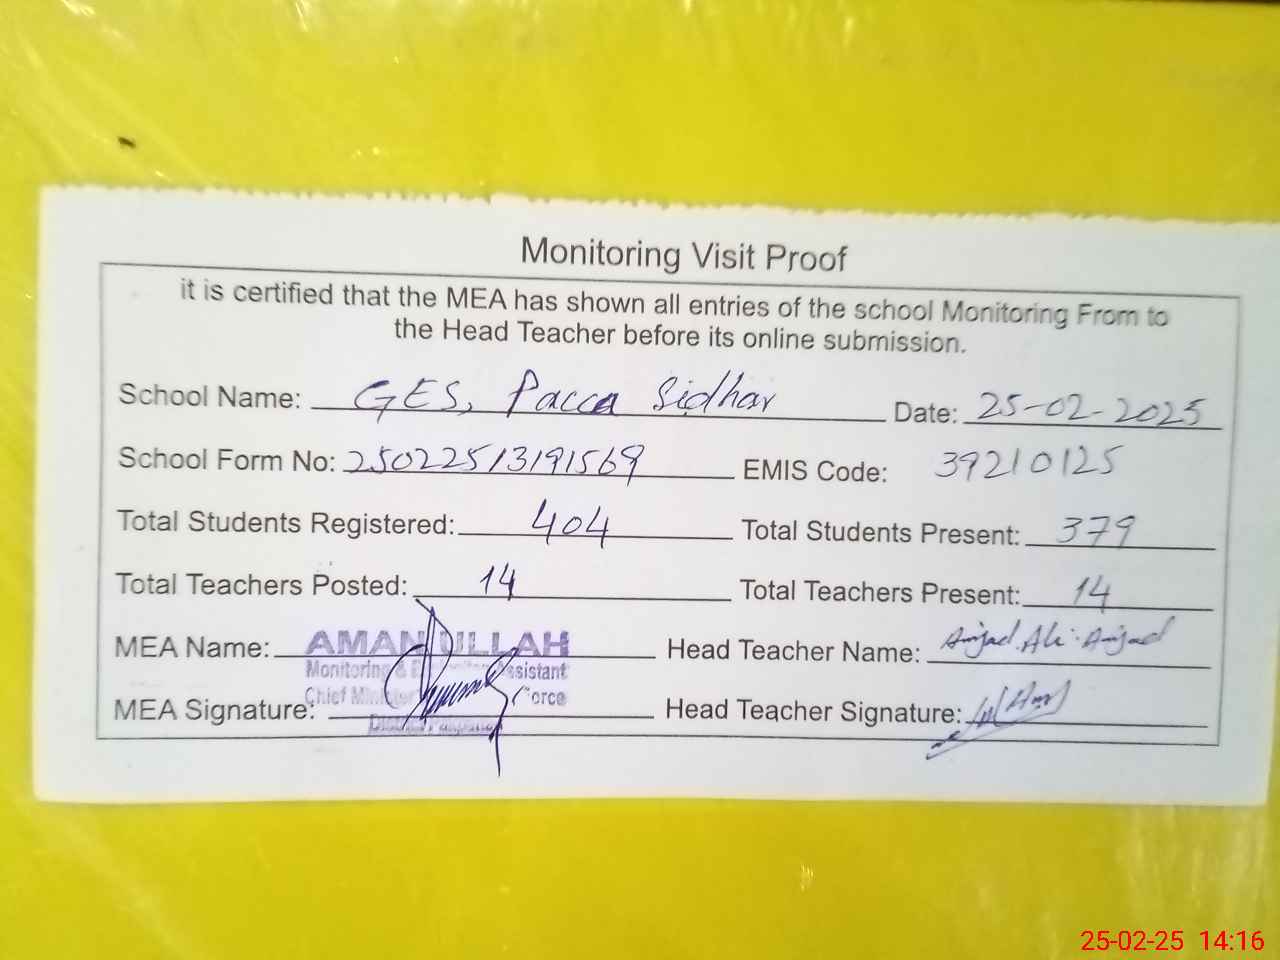 Monitoring Visit Proof
it is certified that the MEA has shown all entries of the school Monitoring From to
the Head Teacher before its online submission.
School Name: GES, Pacca Sidhar Date: 25-02-2025
School Form No: 25022513191569 EMIS Code: 39210125
Total Students Registered: 404 Total Students Present: 379
Total Teachers Posted: 14 Total Teachers Present: 14
MEA Name: AMAN ULLAH Head Teacher Name: Amjad Ali Amjad
Monitoring & Assistant
Chief Force
MEA Signature: Head Teacher Signature:
District
25-02-25 14:16